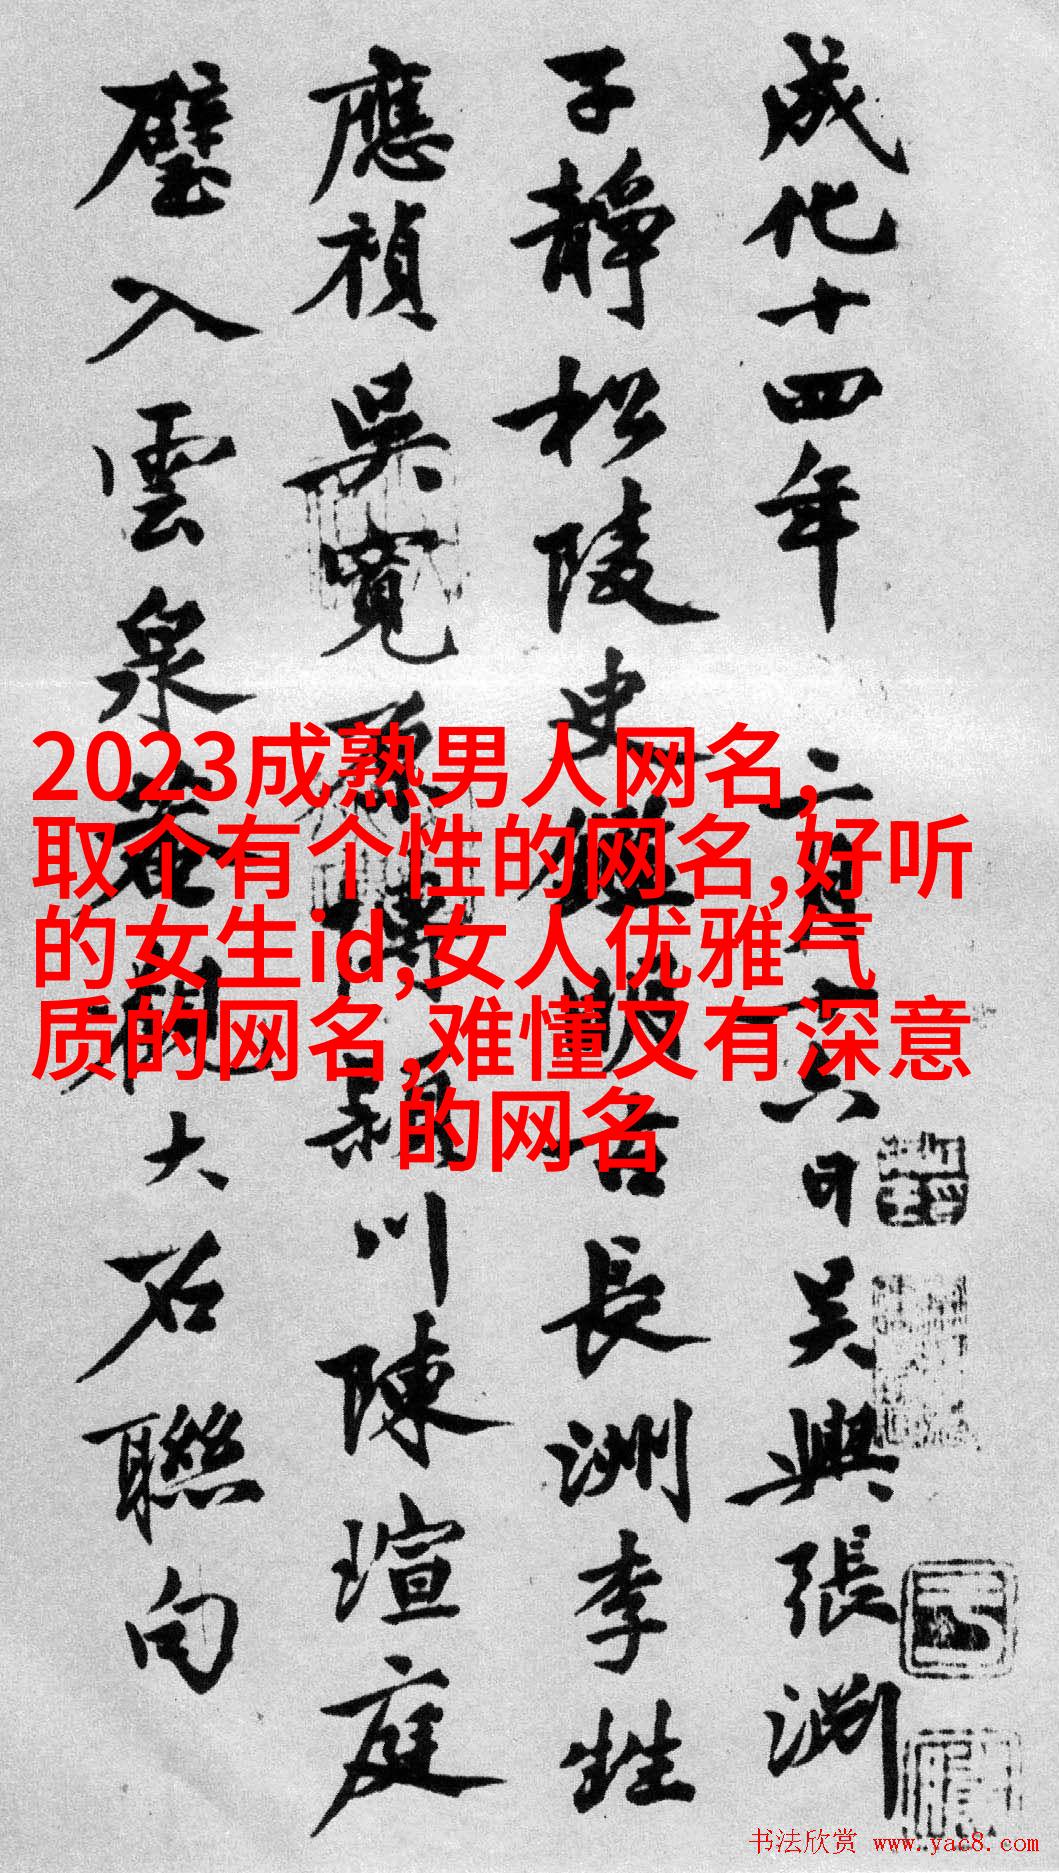 成化十四年二月十六日吴興張渊
子静松陵史鑑明古長洲李甡
應禎吳寬原博潁川陳瑄庭
璧入雲泉菴觀大石聯句
2023成熟男人网名,
取个有个性的网名,好听
的女生id,女人优雅气
质的网名,难懂又有深意
的网名
书法欣赏 www.yac8.com